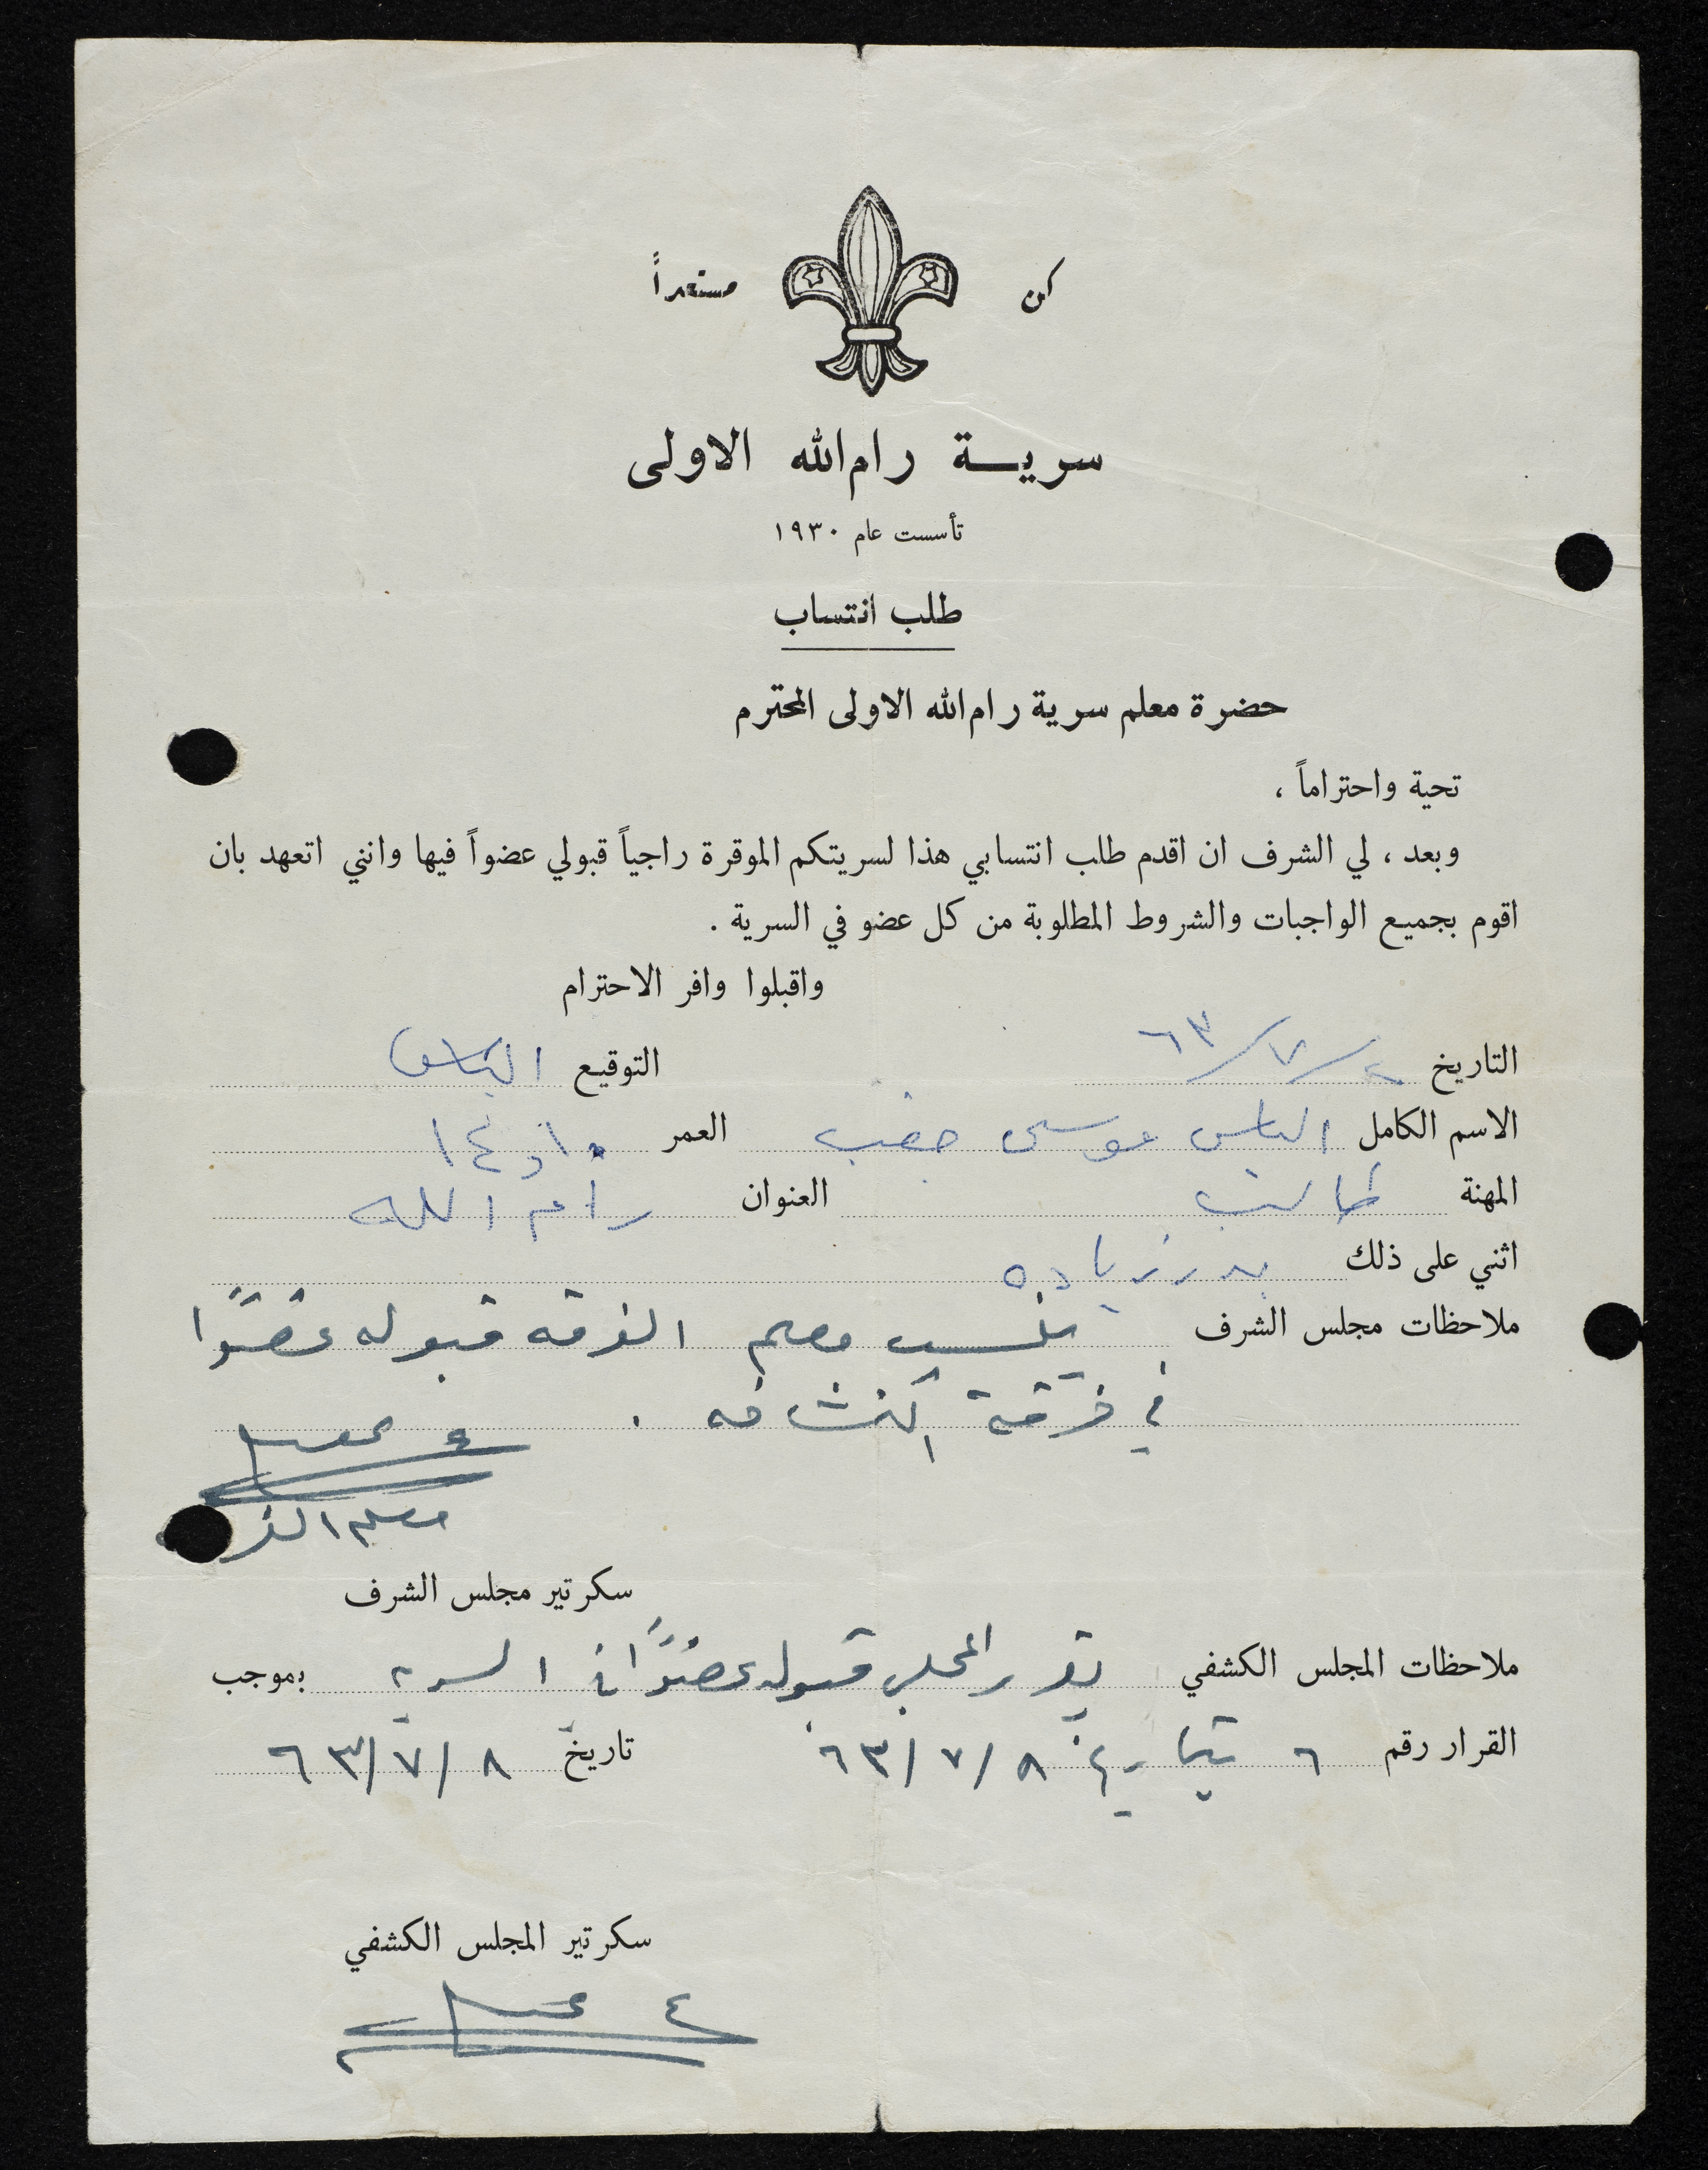 كن مستعداً
سرية رام الله الاولى
تأسست عام ١٩٣٠
طلب انتساب
حضرة معلم سرية رام الله الاولى المحترم
تحية واحتراماً ،
وبعد ، لي الشرف ان اقدم طلب انتسابي هذا لسريتكم الموقرة راجياً قبولي عضواً فيها وانني اتعهد بان
اقوم بجميع الواجبات والشروط المطلوبة من كل عضو في السرية .
واقبلوا وافر الاحترام
التاريخ /٧/٦٣ التوقيع الياس
الاسم الكامل الياس موسى العمر
المهنة طالب العنوان رام الله
اثني على ذلك بدر زياده
ملاحظات مجلس الشرف ينسب معلم الفرقه قبوله عضوًا
في فرقة الكشافه .
معلم
سكرتير مجلس الشرف
ملاحظات المجلس الكشفي يقرر المجلس قبوله عضوًا في السريه بموجب
القرار رقم ٦ بتاريخ ٨/٧/٦٣ تاريخ ٨/٧/٦٣
سكرتير المجلس الكشفي